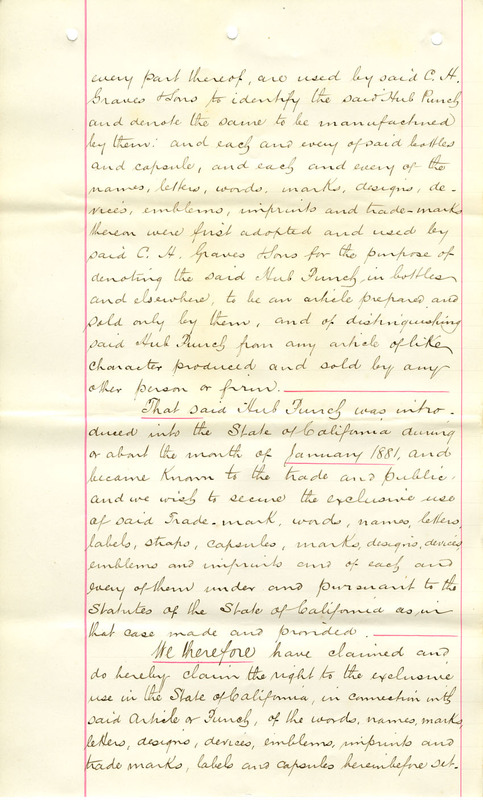 every part thereof, are used by said C. H.
Graves & Sons to identify the said Hub Punch
and denote the same to be manufactured
by them: and each and every of said bottles
and capsule, and each and every of the
names, letters, words, marks, designs, de-
vices, emblems, imprints and trade-marks
thereon were first adopted and used by
said C. H. Graves & Sons for the purpose of
denoting the said Hub Punch, in bottles
and elsewhere, to be an article prepared and
sold only by them, and of distinguishing
said Hub Punch from any article of like
character produced and sold by any
other person or firm.
That said Hub Punch was intro-
duced into the State of California during
or about the month of January 1881, and
became known to the trade and public,
and we wish to secure the exclusive use
of said Trade-mark, words, names, letters,
labels, straps, capsules, marks, designs, devices
emblems and imprints and of each and
every of them under and pursuant to the
Statutes of the State of California as in
that case made and provided.
We therefore have claimed and
do hereby claim the right to the exclusive
use in the State of California, in connection with
said Article or Punch, of the words, names, marks,
letters, designs, devices, emblems, imprints and
trade marks, labels and capsules hereinbefore set-